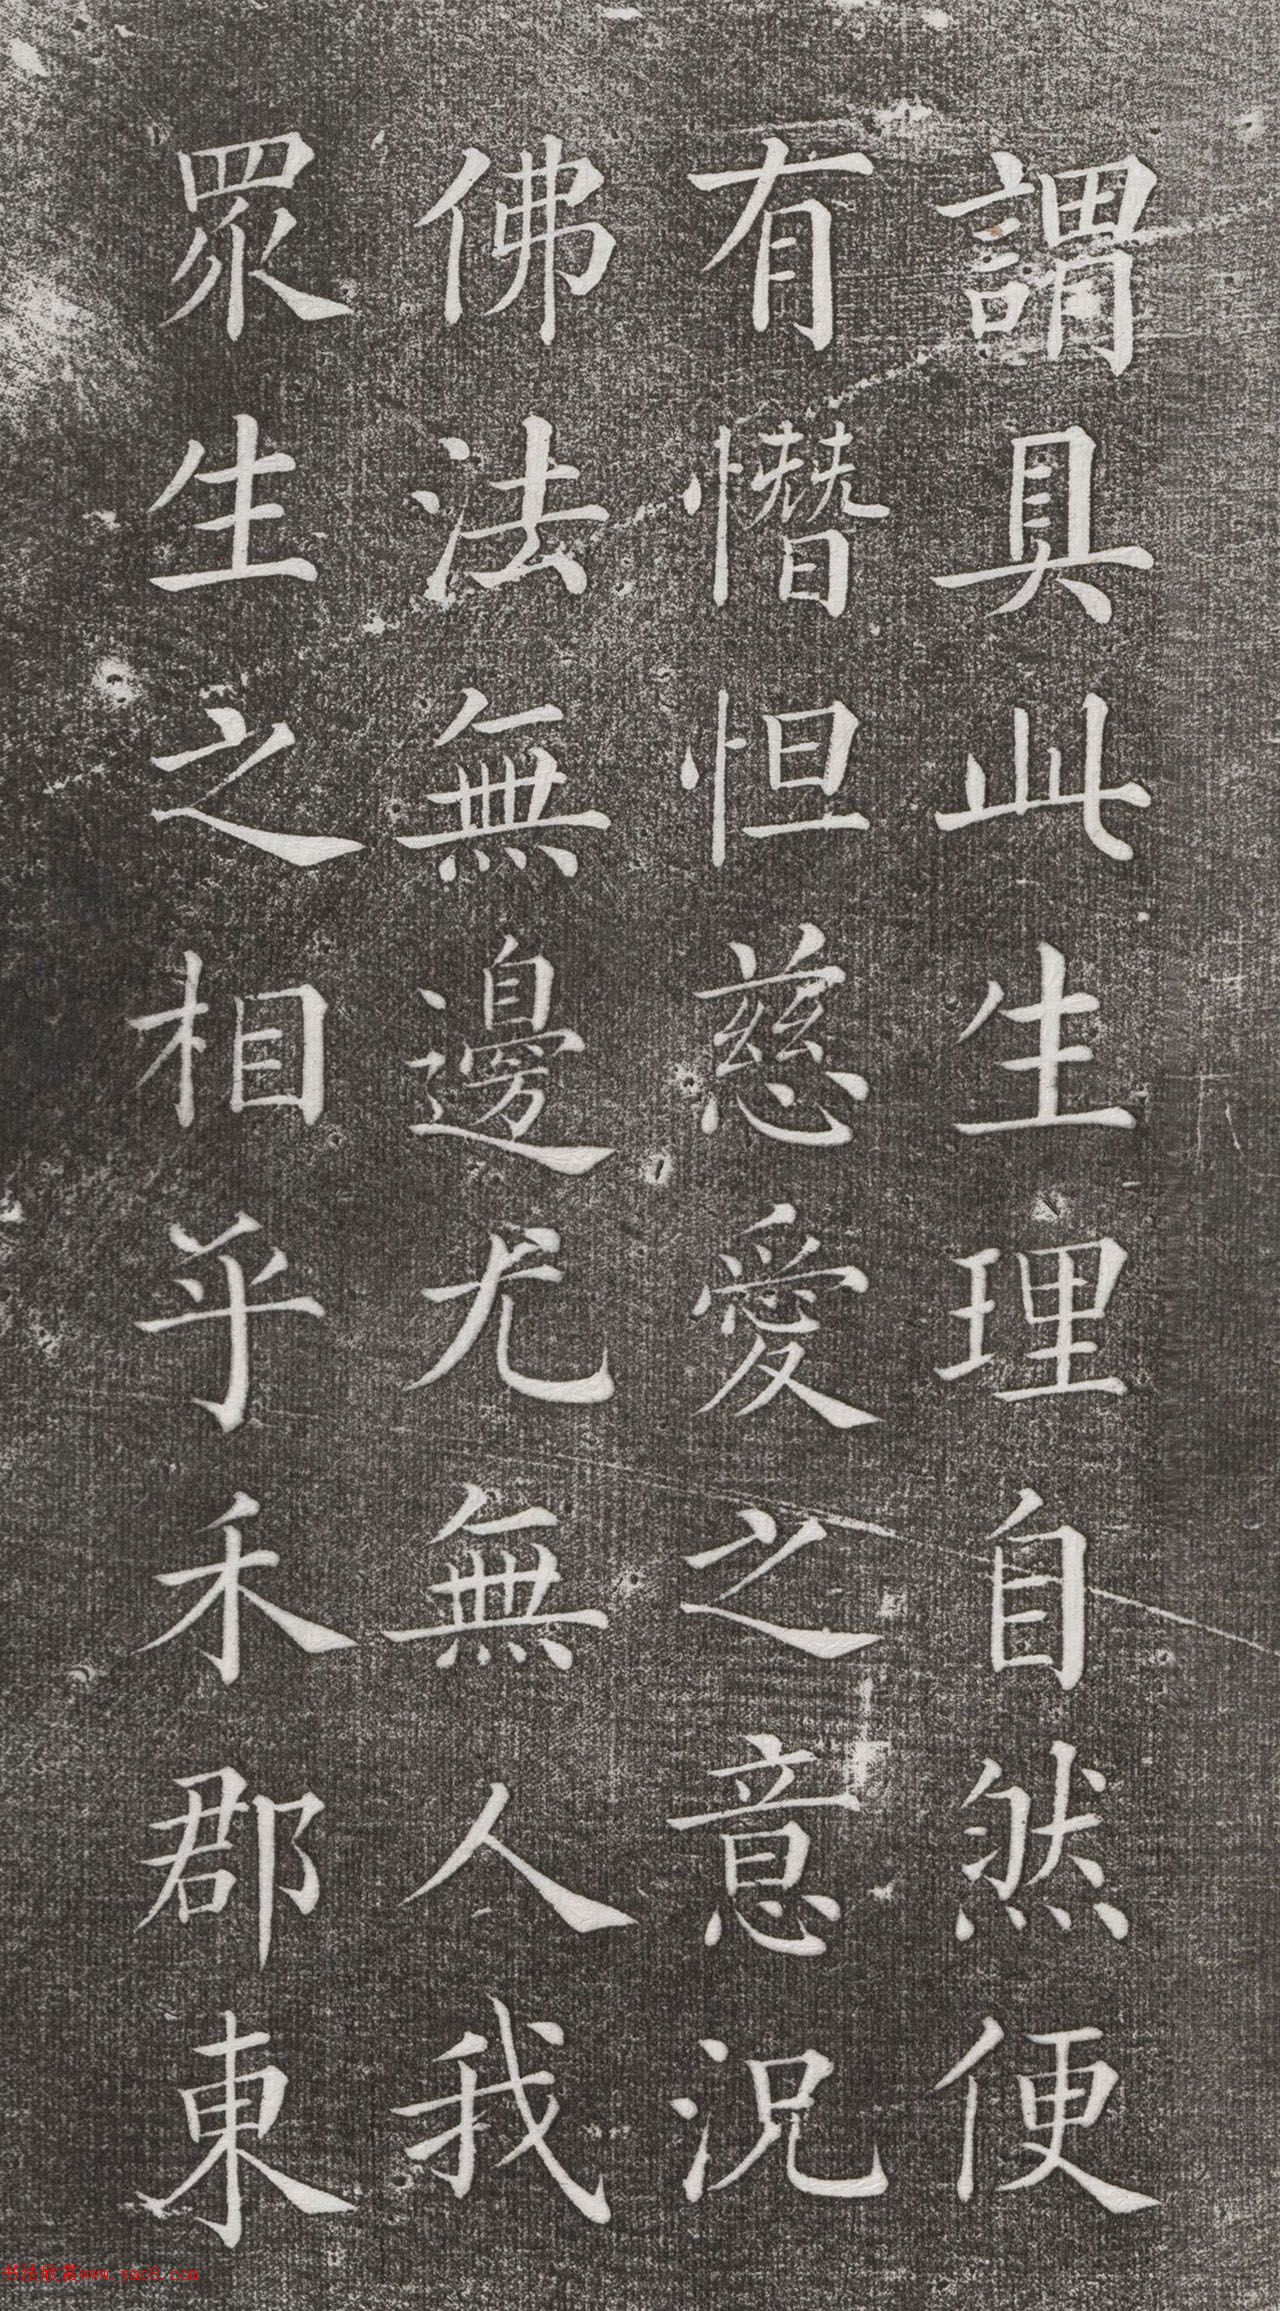 謂具此生理自然便
有憯怛慈愛之意況
佛法無邊尤無人我
眾生之相乎禾郡東
书法欣赏www.yac8.com